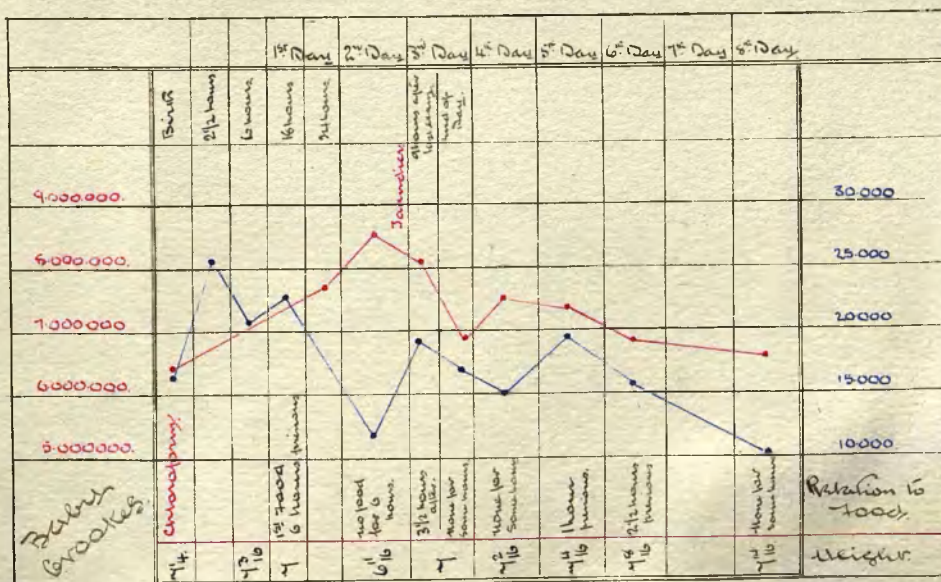 1st Day 2nd Day 3rd Day 4th Day 5th Day 6th Day 7th Day 8th Day
Birth
2 1/2 hours
6 hours
16 hours
24 hours
End of Day.
Jaundice
9.000.000.
8.000.000.
7.000.000
6.000.000.
5.000.000.
30.000
25.000
20.000
15.000
10.000
Baby
Crookes.
Chloroform.
1st Food
6 hours previous
no food
for 6
hours.
3 1/2 hours
after.
none for
some hours.
none for
some hours.
1 hour
previous.
2 1/2 hours
previous
none for
some hours
Relation to
Food.
Weight.